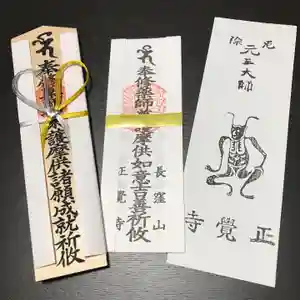 奉修
護摩供諸願成就祈攸
奉修藥師
護摩供如意吉祥祈攸
長窪山
正覺寺
元三大師
正覺寺